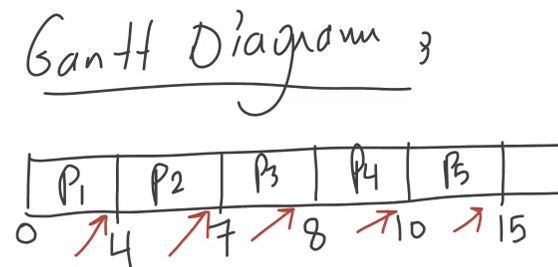 Gantt Diagram :
P1 P2 P3 P4 P5
0 4 7 8 10 15